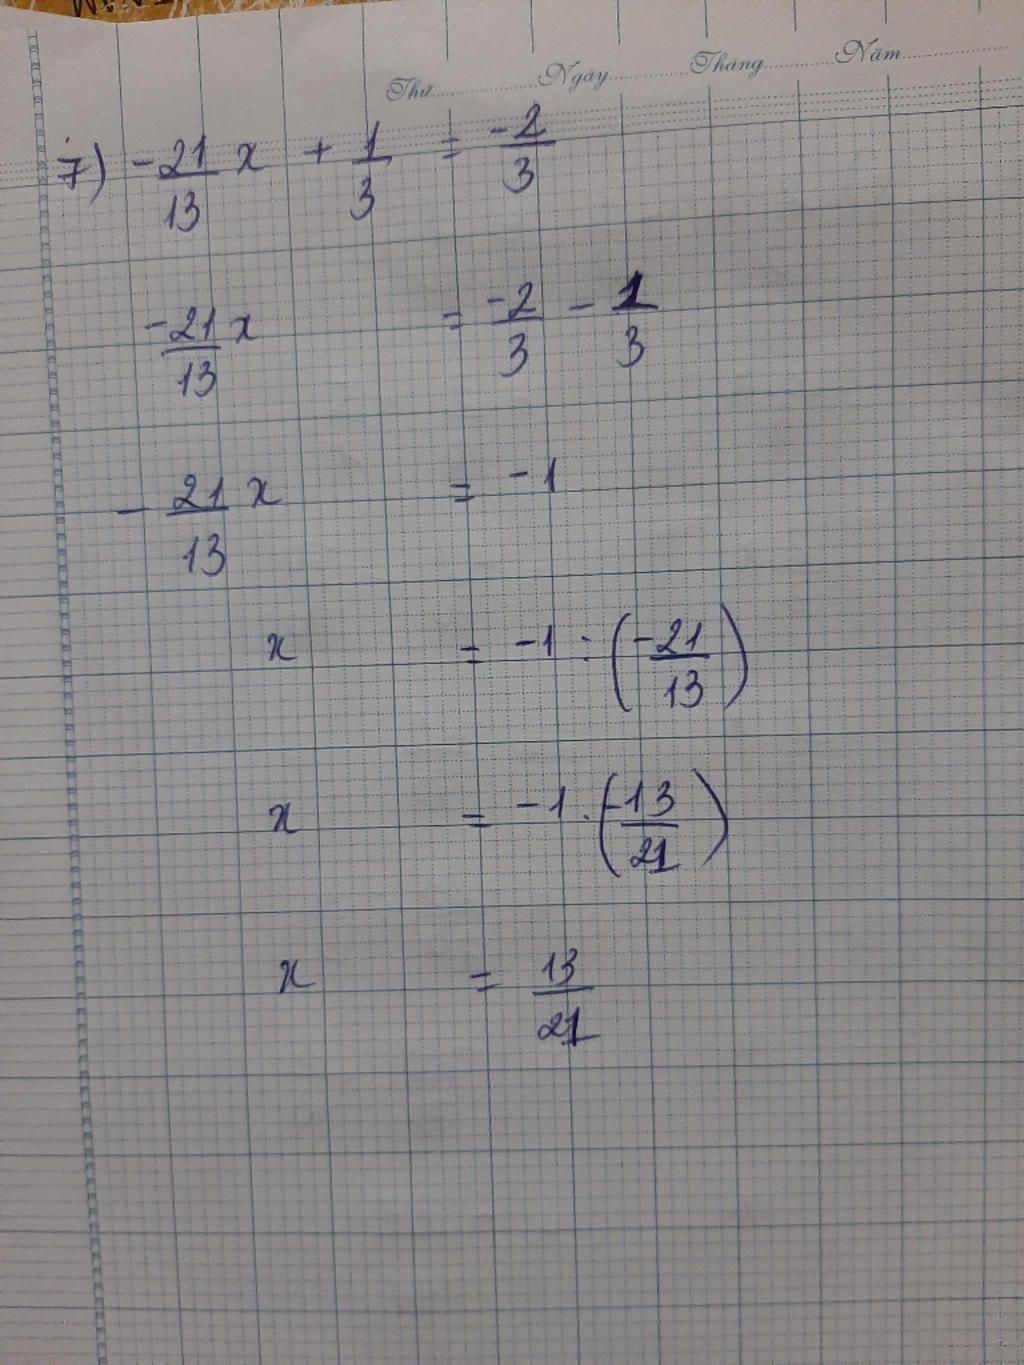 Thứ.............Ngày.............Tháng.............Năm.............
7) -21/13 x + 1/3 = -2/3
-21/13 x = -2/3 - 1/3
- 21/13 x = -1
x = -1 : (-21/13)
x = -1 . (-13/21)
x = 13/21